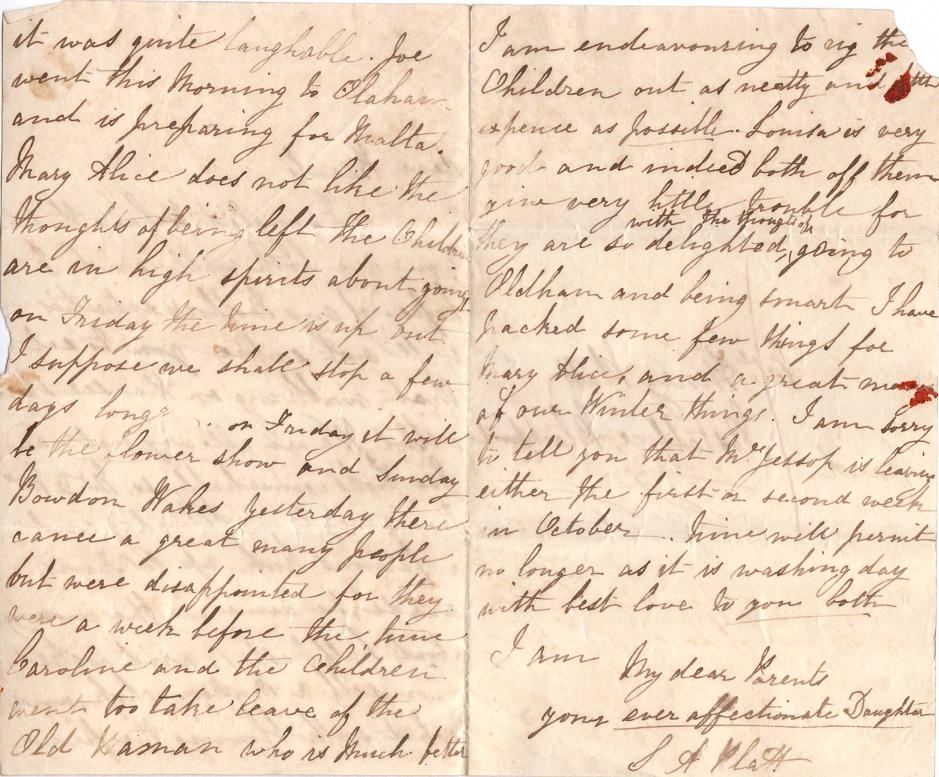 it was quite laughable. Joe
went this Morning to Oldham
and is preparing for Malta.
Mary Alice does not like the
thoughts of being left the Children
are in high spirits about going
on Friday the time is up but
I suppose we shall stop a few
days longe on Friday it will
be the flower show and Sunday
Bowdon Wakes Yesterday there
came a great many people
but were disappointed for they
were a week before the time
Caroline and the Children
went too take leave of the
Old who is much better
I am endeavouring to rig the
Children out as neatly and little
expence as possible. Louisa is very
good and indeed both off them
give very little trouble for
they are so delighted, with the thoughts of going to
Oldham and being smart I have
packed some few things for
Mary Alice, and a great many
of our Winter things. I am sorry
to tell you that Mr Jessop is leaving
either the first or second week
in October. Time will permit
no longer as it is washing day
with best love to you both
I am
My dear Parents
your ever affectionate Daughter
S A Platt